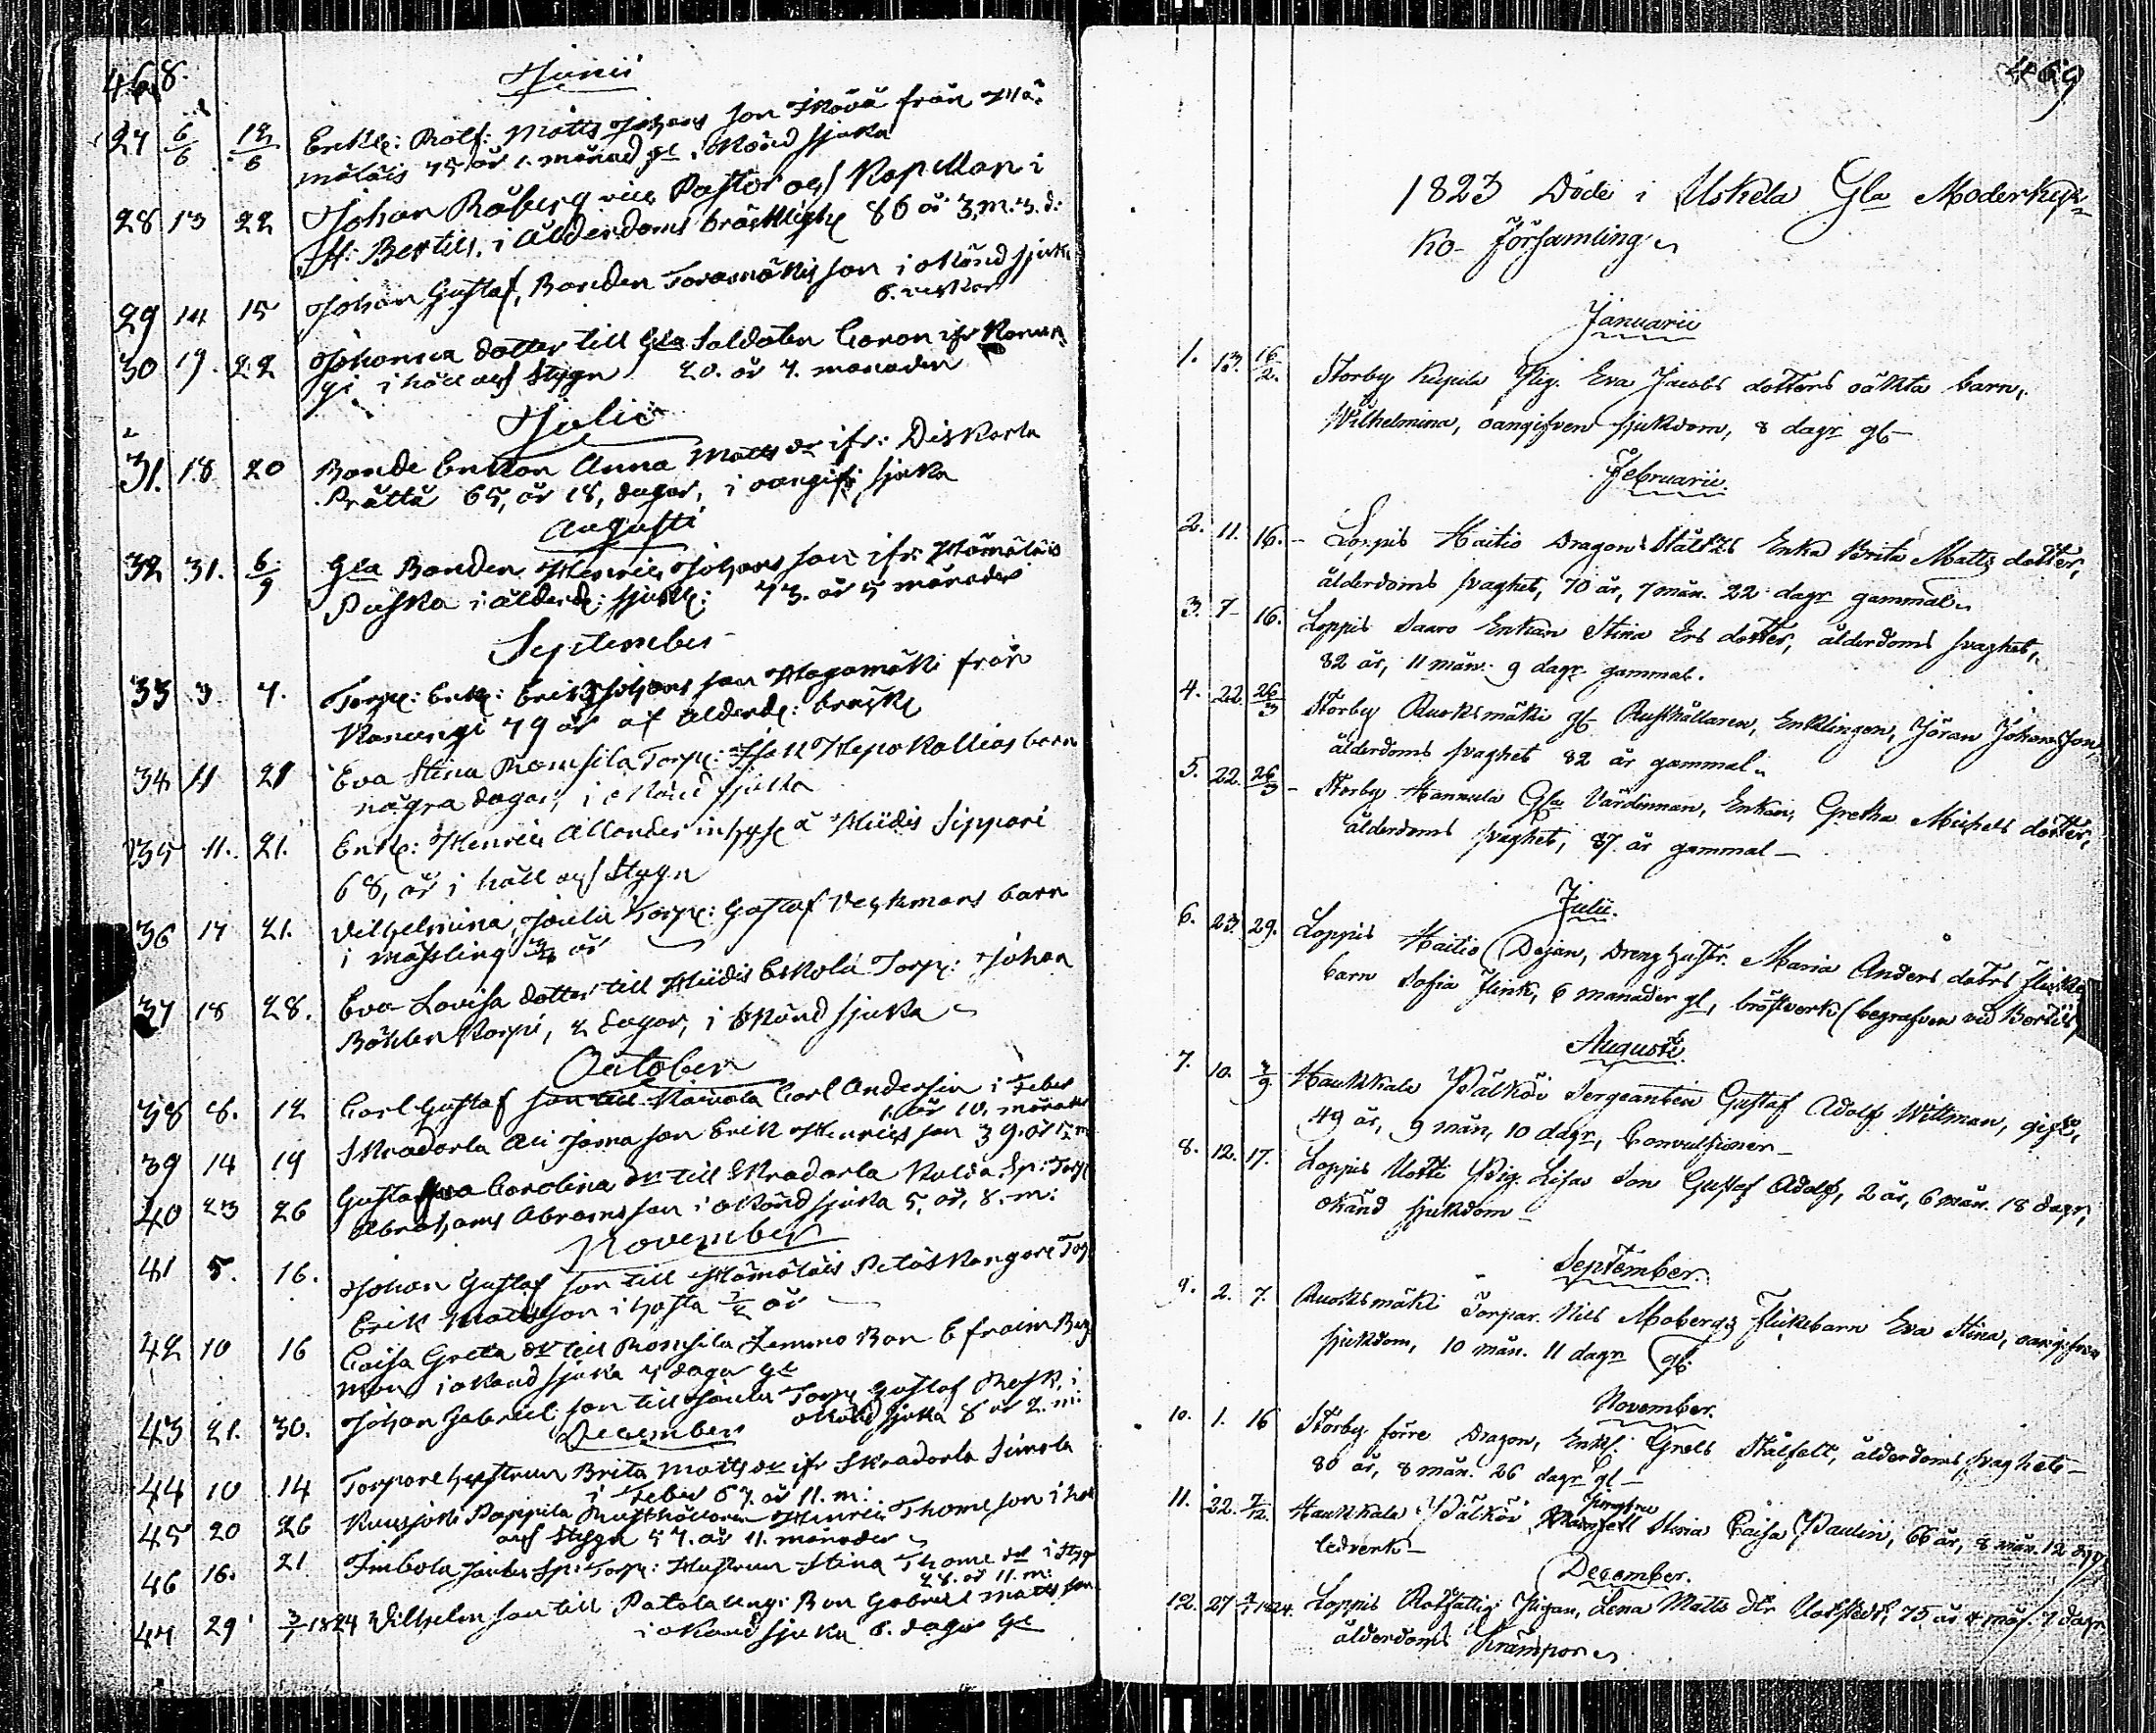 468.
Junii
27 6/6 12/6 Enkl: Rotf: Matts Johans son från Hä-
mäläis 75 år 1. månad gl i okänd sjuka
28 13 22 Johan Råberg vice Pastor och Kapellan i
St: Bertils, i Ålderdoms bräcklighe 86 år 3, m. 3. d:
29 14 15 Johan Gustaf, Bonden Toramäkis son i okänd sjuk:
6. veckor
30 19. 22 Johanna dotter till Gla Soldaten Caron ifr Konun
gi i håll och Stygn 20. år 4. månader
Julii
31. 18 20 Bonde Enkan Anna Matts dr ifr: Diskarla
Prättä 65, år 18, dagar, i oangifn sjuka
Augusti
32 31. 6/9 Gla Bonden Henric Johans son ifr Hämäläis
Puska i ålderd: sjukl: 73. år 5 månader
September
33 3 7. Torp: Enkl: Erik Johans son Hagamäki från
Konungi 79 år af ålderd: bräckl
34 11 21 Eva Stina Romsila Torp: Isak Hepokallios barn
några dagar, i okänd sjukka
35 11. 21. Enkl: Henric Allander inhyses å Hiidis Sippari
68, år i håll och Stygn
36 17 21. Vilhelmina, Joula Torp: Gustaf Veckmans barn
i mässling 3/4 år
37 18 28. Eva Lovisa dotter till Hiidis Eskola Torp: Johan
Korpi, 2 dagar, i okänd sjuka
October
38 8. 12 Carl Gustaf son till Koivola Carl Andersin i Feber
1. år 10. månader
39 14 19 Skradarla Ali Jama son Erik Henrics son 39. år
40 23 26 Gustafva Carolina dr till Skradarla Kulda Sp: Torp
Abrahams Abrams son i okänd sjuka 5, år, 8. m:
November
41 5. 16. Johan Gustaf son till Hämäläis Petäs Kangare Torp
Erik Matts son i hosta 1/2 år
42 10 16 Caisa Greta dr till Romsila Lemmo Bon Efraim Berg
man i okänd sjuka 4 dagar gl
43 21. 30. Johan Gabriel son till Joula Torp Gustaf Rask, i
okänd sjuka 8 år 2. m:
December
44 10 14 Torpare hustrun Brita Matts dr ifr Skradarla Simola
i Feber 67. år 11. m:
45 20 26 Kuusjoki Pappila Rusthållaren Henric Thomeson i håll
och Stygn 57. år 11. månader
46 16. 21 Finbola Jaribs Sp: Torp: Hustrun Stina Thome dr i Styg
28. år 11. m:
47 29 3/1 1824 Vilhelm son till Patola ung: Bon Gabriel Matts son
i okänd sjuka 6. dagar gl
469
1823 Döde i Uskela Gla Moderkyr-
ko-Församling
Januarii
1. 13. 16/2. Storby Kupila Pig. Eva Jacobs dotters oäkta barn,
Wilhelmina, oangifven sjukdom, 8 dagr gl
Februarii.
2. 11. 16. Loppis Haitio Dragons Stålts Enka Brita Matts dotter,
ålderdoms svaghet, 70 år, 7 mån. 22 dagr gammal
3. 7 16. Loppis Saaro Enkan Stina Ers dotter, ålderdoms svaghet,
82 år, 11 mån. 9 dagr gammal.
4. 22. 26/3 Storby Ruoksmäki gl Rusthållaren, Enklingen, Jöran Johansson,
ålderdoms svaghet 82 år gammal
5. 22. 26/3 Storby Hannula Gla Värdinnan, Enkan, Gretha Michels dotter,
ålderdoms svaghet, 87 år gammal
Julii.
6. 23. 29. Loppis Haitio Dejan, Dreng hustr. Maria Anders dotrs flicke-
barn Sofia Flink, 6 månader gl, bröstverk (begrafven vid Bertils)
Augusti.
7. 10. 7/9 Haukkala Pälköi Sergeanten Gustaf Adolf Wittman, gift,
49 år, 9 mån, 10 dagr, Convulsioner
8. 12. 17. Loppis Uotti Pig. Lisas Son Gustaf Adolf, 2 år, 6 mån. 18 dagr,
okänd sjukdom
September.
9. 2. 7. Ruoksmäki Torpar. Nils Mobergs Flickebarn Eva Stina, oangifven
sjukdom, 10 mån. 11 dagr gl.
November.
10. 1. 16 Storby förre Dragon, Enkl: Grels Stålfelt, ålderdoms svaghets
80 år, 8 mån. 26 dagr gl
11. 22. 7/12. Haukkala Pälköi Jungfru Maria Caisa Paulin, 66 år, 8 mån. 12 dagr,
ledverk
December.
12. 27 1824. Loppis Pigan, Lena Matts dtr 75 år 4 mån. 7 dagr
ålderdoms Krämpor